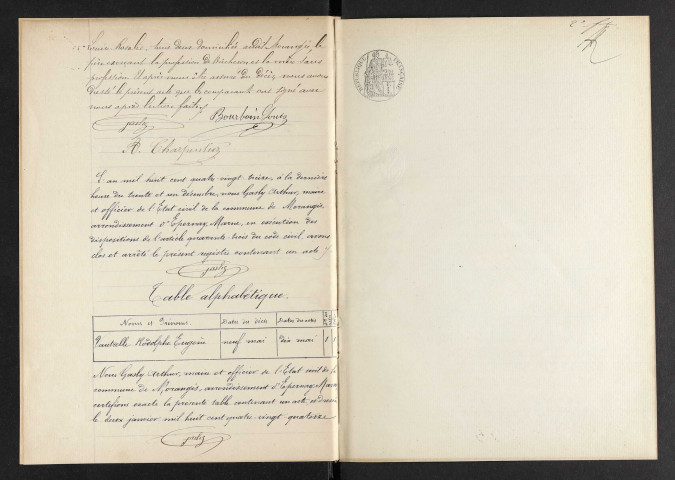 Louise Rosalie, tous deux domiciliés audit Morangis, le
père exerçant la profession de bûcheron et la mère sans
profession. Et après nous être assuré du décès, nous avons
dressé le présent acte que les comparants ont signé avec
nous après lecture faite.
Gasby Bourbois Louis
A. Charpentier
L'an mil huit cent quatre vingt treize, à la dernière
heure du trente et un décembre, nous Gasby Arthur, maire
et officier de l'Etat civil de la commune de Morangis
arrondissement d'Epernay Marne, en exécution des
dispositions de l'article quarante-trois du code civil, avons
clos et arrêté le présent registre contenant un acte
Gasby
Table alphabétique.
Noms et Prénoms Dates du décès Dates des actes
Rodolphe Eugène neuf mai dix mai 1
Nous Gasby Arthur, maire et officier de l'Etat civil de la
commune de Morangis, arrondissement d'Epernay Marne
certifions exacte la présente table contenant un acte
le deux janvier mil huit cent quatre-vingt quatorze
Gasby